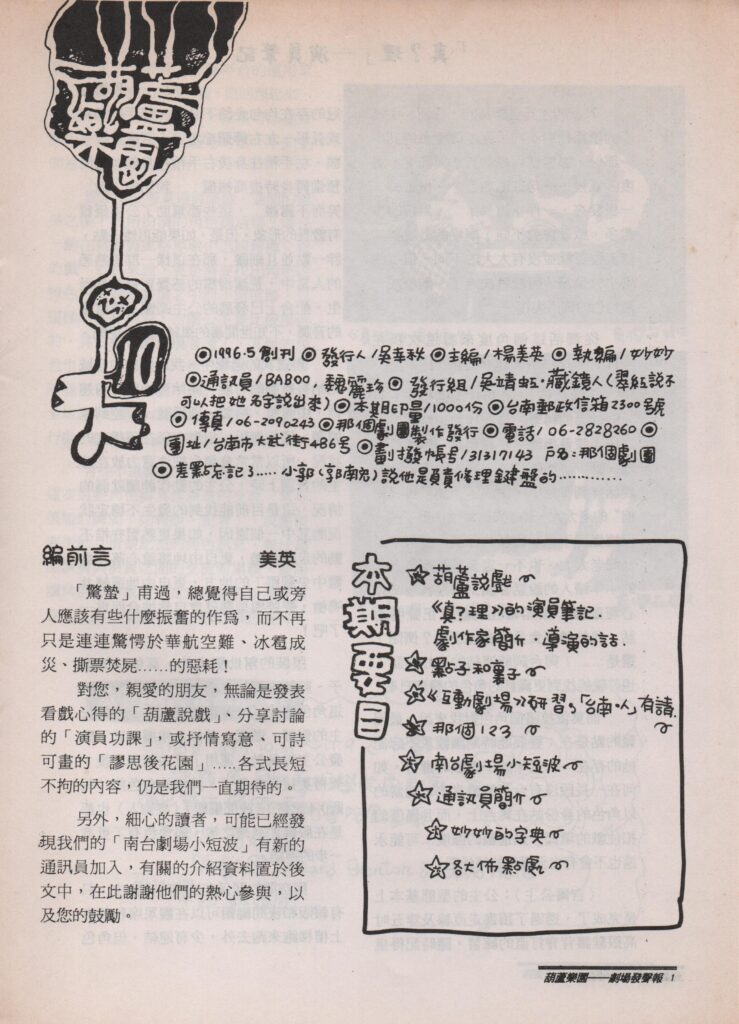 葫蘆樂園
10
◎1996.5創刊 ◎發行人/吳幸秋 ◎主編/楊美英 ◎執編/妙妙
◎通訊員/BABOO, 魏麗珍 ◎發行組/吳靖虹·藏鏡人(翠紅說不
可以把她名字說出來) ◎本期印量/1000份 ◎台南郵政信箱2300號
◎傳真/06-2090243 ◎那個劇團製作發行 ◎電話/06-2828260 ◎
團址/台南市大武街486號 ◎劃撥帳號/31317143 戶名:那個劇團
◎差點忘記了..... 小郭(郭南宛)說他是負責修理鍵盤的............
編前言 美英
「驚蟄」甫過，總覺得自己或旁
人應該有些什麼振奮的作爲，而不再
只是連連驚愕於華航空難、冰雹成
災、撕票焚屍……的惡耗！
對您，親愛的朋友，無論是發表
看戲心得的「葫蘆說戲」、分享討論
的「演員功課」，或抒情寫意、可詩
可畫的「謬思後花園」……各式長短
不拘的內容，仍是我們一直期待的。
另外，細心的讀者，可能已經發
現我們的「南台劇場小短波」有新的
通訊員加入，有關的介紹資料置於後
文中，在此謝謝他們的熱心參與，以
及您的鼓勵。
本期要目
☆葫蘆說戲
《真?理》的演員筆記.
劇作家簡介·導演的話.
☆點子和裏子
☆《互動劇場》研習,「台南·人」有請.
☆那個123
☆南台劇場小短波
☆通訊員簡介
☆妙妙的字典
☆各佈點處
葫蘆樂園——劇場發聲報 1